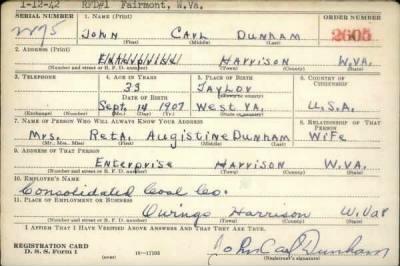 1-12-42 RFD#1 Fairmont, W.Va.
SERIAL NUMBER 1. NAME (Print) ORDER NUMBER
John Carl Dunham 2605
(First) (Middle) (Last)
2. ADDRESS (Print)
Harrison W.VA.
(Number and street or R. F. D. number) (Town) (County) (State)
3. TELEPHONE 4. AGE IN YEARS 5. PLACE OF BIRTH 6. COUNTRY OF CITIZENSHIP
33 Taylor
DATE OF BIRTH (Town or county)
Sept. 14 1907 West VA. U.S.A.
(Exchange) (Number) (Mo.) (Day) (Yr.) (State or country)
7. NAME OF PERSON WHO WILL ALWAYS KNOW YOUR ADDRESS 8. RELATIONSHIP OF THAT PERSON
Mrs. Reta Augistine Dunham Wife
(Mr., Mrs., Miss) (First) (Middle) (Last)
9. ADDRESS OF THAT PERSON
Enterprise Harrison W.VA.
(Number and street or R. F. D. number) (Town) (County) (State)
10. EMPLOYER'S NAME
Consolidated Coal Co.
11. PLACE OF EMPLOYMENT OR BUSINESS
Owings Harrison W.Va
(Number and street or R. F. D. number) (Town) (County) (State)
I AFFIRM THAT I HAVE VERIFIED ABOVE ANSWERS AND THAT THEY ARE TRUE.
REGISTRATION CARD
D. S. S. Form 1 16—17105 John Carl Dunham
(Registrant's signature)